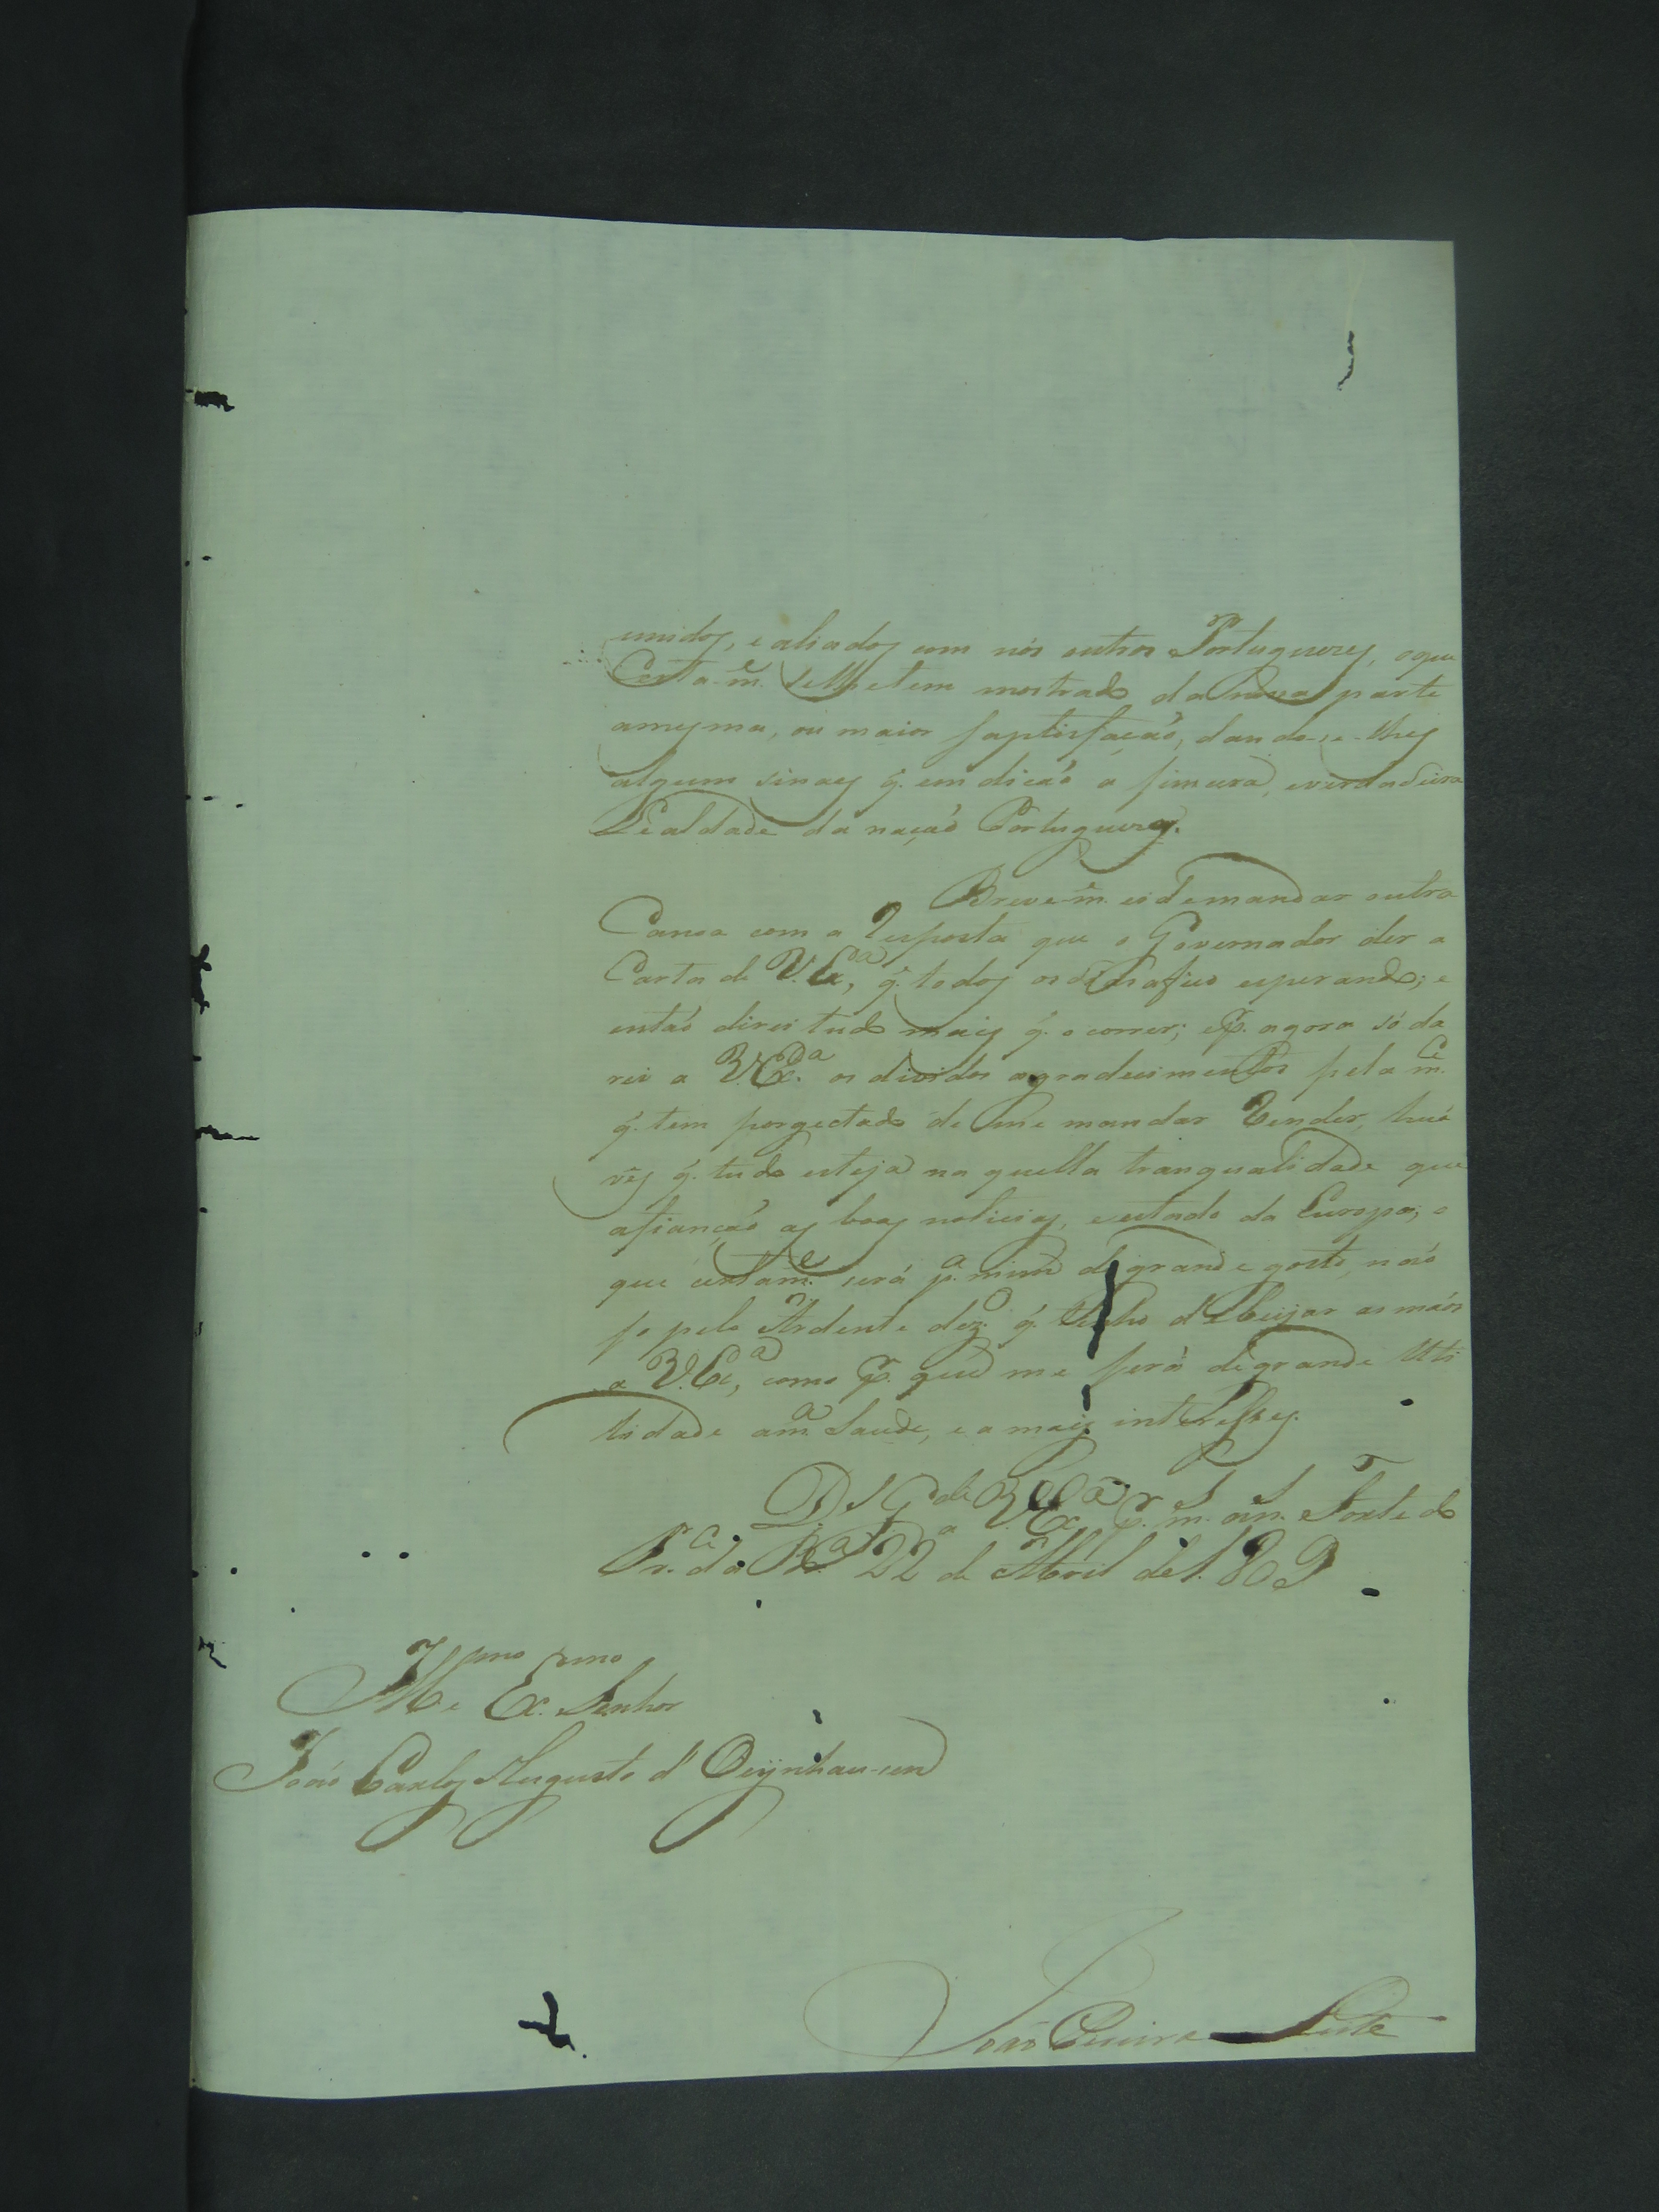 unidos, e aliados com nós outros Portuguezes, o que
Certa-m.e se lhe tem mostrado da nossa parte
amesma, ou maior saptisfação, dando-se-lhes
algum sinaes q. em dicaõ a finura, everdadeira
Lealdade da nação Portugueza.
Breve-m.e eide mandar outra
Canoa com a Resposta que o Governador der a
Carta de V. Ex.a, q. todos os dias a fico esperando; e
entaõ direi tudo mais q. o correr; e p.r agora só da
rei a V. Ex.a os dividos agradecimentos pela m.ce
q. tem porgectado de me mandar Render, huá
vez q. tudo esteja na quella tranqualidade que
afiançaõ as boas noticias, e estado da Europa; o
que certam.e será p.a mim de grande gosto, naõ
so pelo Ardente dez.o q. tenho de beijar as maõs
a V. Ex.a, como p.r que me será de grande Uti
lidade am.a Saude, e a mais interesses.
D.s G.de a V. Ex.a p.r m.s an.s Forte do
Pr. da B.a 22 de Abril de 1809
Ill.mo e Ex.mo Senhór
Joaõ Carlos Augusto d'Oeynhau-sen
Joaõ Pereira Leite